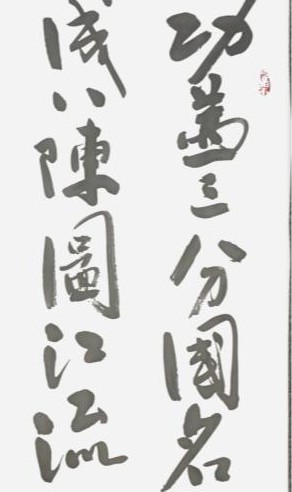 功蓋三分國名
成八陳圖江流